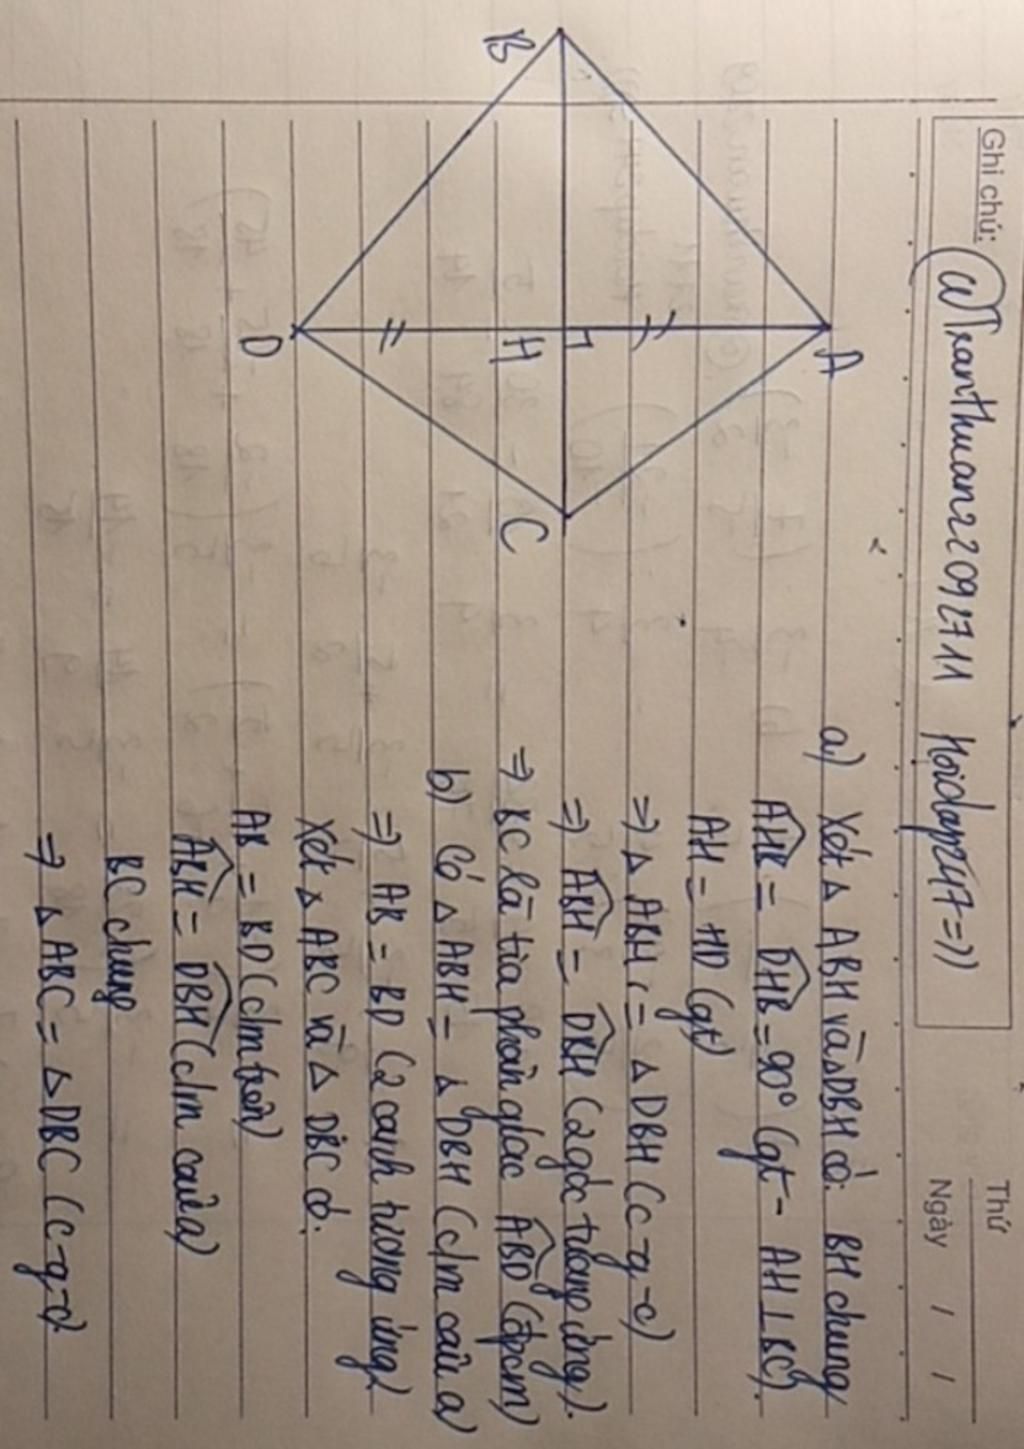 Ghi chú:
Thứ
Ngày / /
@Tranthuan22092711 Hoidap247=))
B
A
H
D
C
a) Xét △ ABH và △DBH có: BH chung
AHB = DHB = 90° (gt - AH ⊥ BC).
AH = HD (gt)
=> △ ABH = △ DBH (c-g-c)
=> ABH = DBH (2 góc tương ứng).
=> BC là tia phân giác ABD (đpcm)
b) Có △ ABH = △ DBH (c/m câu a)
=> AB = BD (2 canh tương ứng)
Xét △ ABC và △ DBC có:
AB = BD (c/m trên)
ABH = DBH (c/m câu a)
BC chung
=> △ ABC = △ DBC (c-g-c)